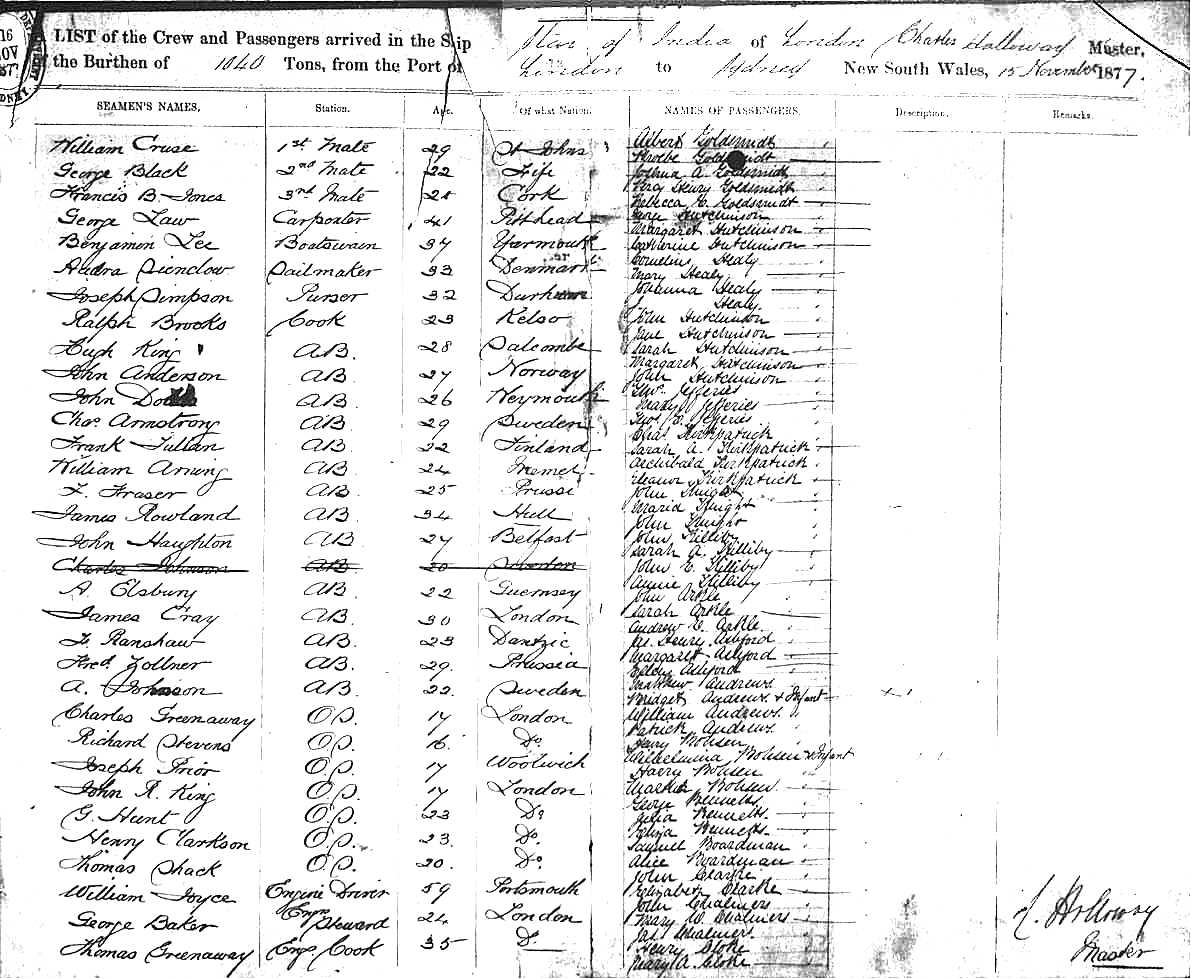 16
NOV
LIST of the Crew and Passengers arrived in the Ship Star of India of London Charles Holloway Master,
the Burthen of 1040 Tons, from the Port of London to Sydney New South Wales, 15 November 1877.
SEAMEN'S NAMES, Station. Age. Of what Nation. NAMES OF PASSENGERS Description. Remarks.
William Cruse 1st Mate 29 St Johns
George Black 2nd Mate 22 Fife
Francis B. Jones 3rd Mate 21 Cork
George Law Carpenter 41 Pitthead
Benjamin Lee Boatswain 37 Yarmouth
Sailmaker 33 Denmark
Joseph Simpson Purser 32 Durham
Ralph Brooks Cook 23 Kelso
Hugh King AB. 28 Salcombe
John Anderson AB. 27 Norway
John AB 26 Weymouth
Chas. Armstrong AB 29 Sweden
Frank Julian AB. 22 Finland
William Arning AB 24 Memel
F. Fraser AB 25 Prussi
James Rowland AB. 34 Hull
John Haughton AB 27 Belfast
Charles Johnson AB 20 Sweden
A. Elsbury AB. 22 Guernsey
James Cray AB. 30 London
F. Ranshaw AB. 23 Dantzic
Fred. Zollner AB. 29. Prussia
A. Johnson AB 22. Sweden
Charles Greenaway O.S. 17 London
Richard Stevens O.S. 16. Do
Joseph Prior O.S. 17 Woolwich
John R. King O.S. 17 London
G. Hunt O.S. 23 Do
Henry Clarkson O.S. 23. Do.
Thomas Shack O.S. 20. Do
William Joyce Engine Driver 59 Portsmouth
George Baker Engrs Steward 24 London
Thomas Greenaway Engs Cook 35 D.
Albert Goldsmidt
Phoebe Goldsmidt
Joshua A. Goldsmidt
Percy Henry Goldsmidt
Rebecca E. Goldsmidt
George Hutchinson
Margaret Hutchinson
Catherine Hutchinson
Cornelius Healy
Mary Healy
Johanna Healy
J. Healy
John Hutchinson
Jane Hutchinson
Sarah Hutchinson
Margaret Hutchinson
John Hutchinson
Thos. Jefferies
Mary Jefferies
Thos. E. Jefferies
Chas Kirkpatrick
Sarah A. Kirkpatrick
Archibald Kirkpatrick
Eleanor Kirkpatrick
John Knight
Maria Knight
John Knight
John Killiby
Sarah A. Killiby
John E. Killiby
Annie Killiby
John Arkle
Sarah Arkle
Andrew E. Arkle
Henry Ashford
Margaret Ashford
Ashford
Matthew Andrews
Bridget Andrews & Infant
William Andrews
Patrick Andrews
Henry Bohsen
Wilhelmina Bohsen & Infant
Harry Bohsen
Bohsen
George Bennetts
Julia Bennetts
Bennetts
Samuel Boardman
Alice Boardman
John Clarke
Elizabeth Clarke
John Chalmers
Mary W. Chalmers
Jas Chalmers
Henry Cloke
Mary A. Cloke
C. Holloway
Master